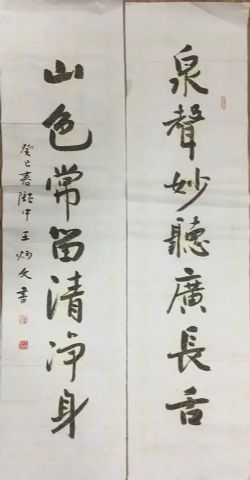 泉聲妙聽廣長舌
山色常留清淨身
癸巳春隴中王炳文書